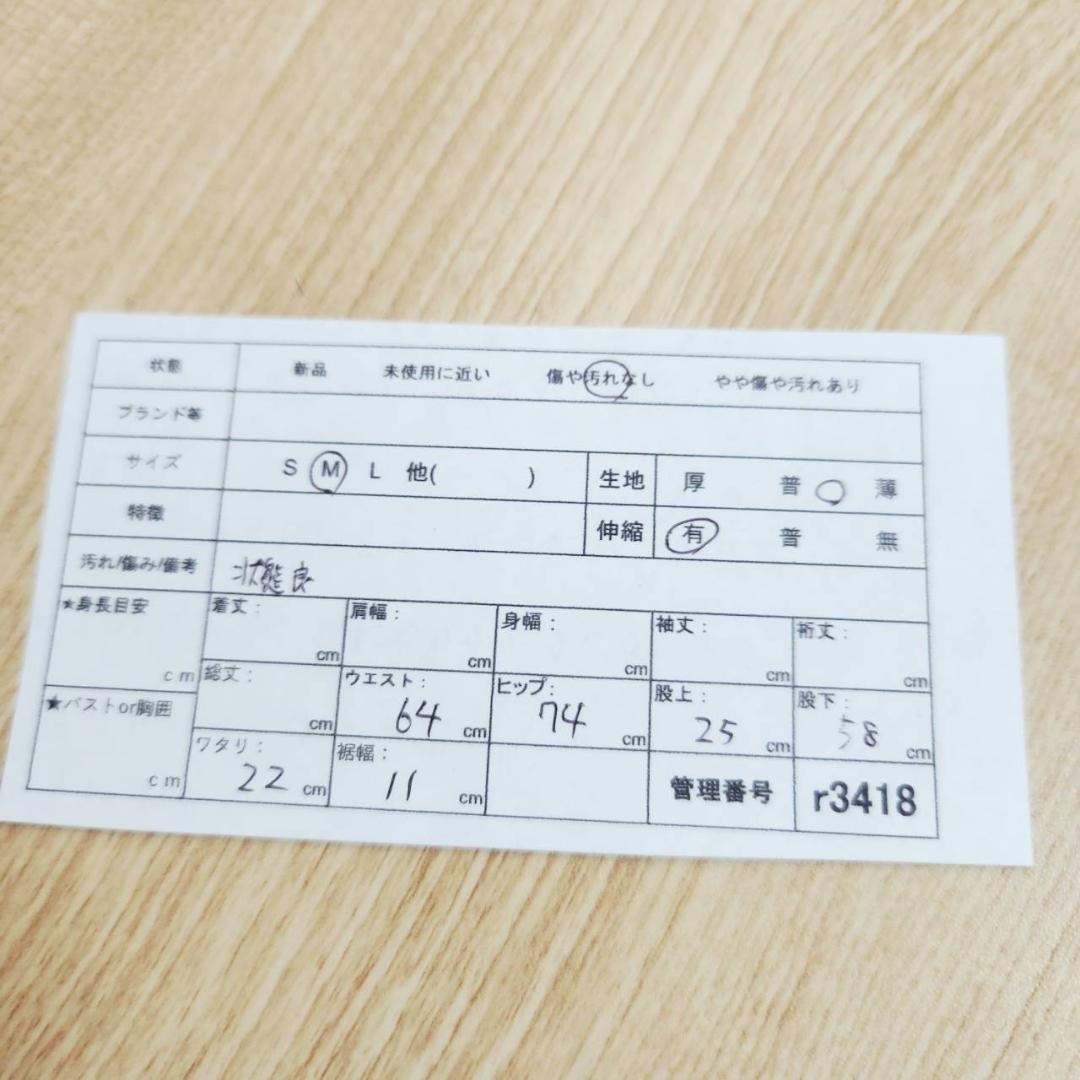 状態 新品 未使用に近い 傷や汚れなし やや傷や汚れあり
ブランド等
サイズ S M L 他( ) 生地 厚 普 薄
特徴 伸縮 有 普 無
汚れ/傷み/備考 状態良
★身長目安 cm 着丈： cm 肩幅： cm 身幅： cm 袖丈： cm 裄丈： cm
★バストor胸囲 cm 総丈： cm ウエスト： 64 cm ヒップ： 74 cm 股上： 25 cm 股下： 58 cm
ワタリ： 22 cm 裾幅： 11 cm 管理番号 r3418